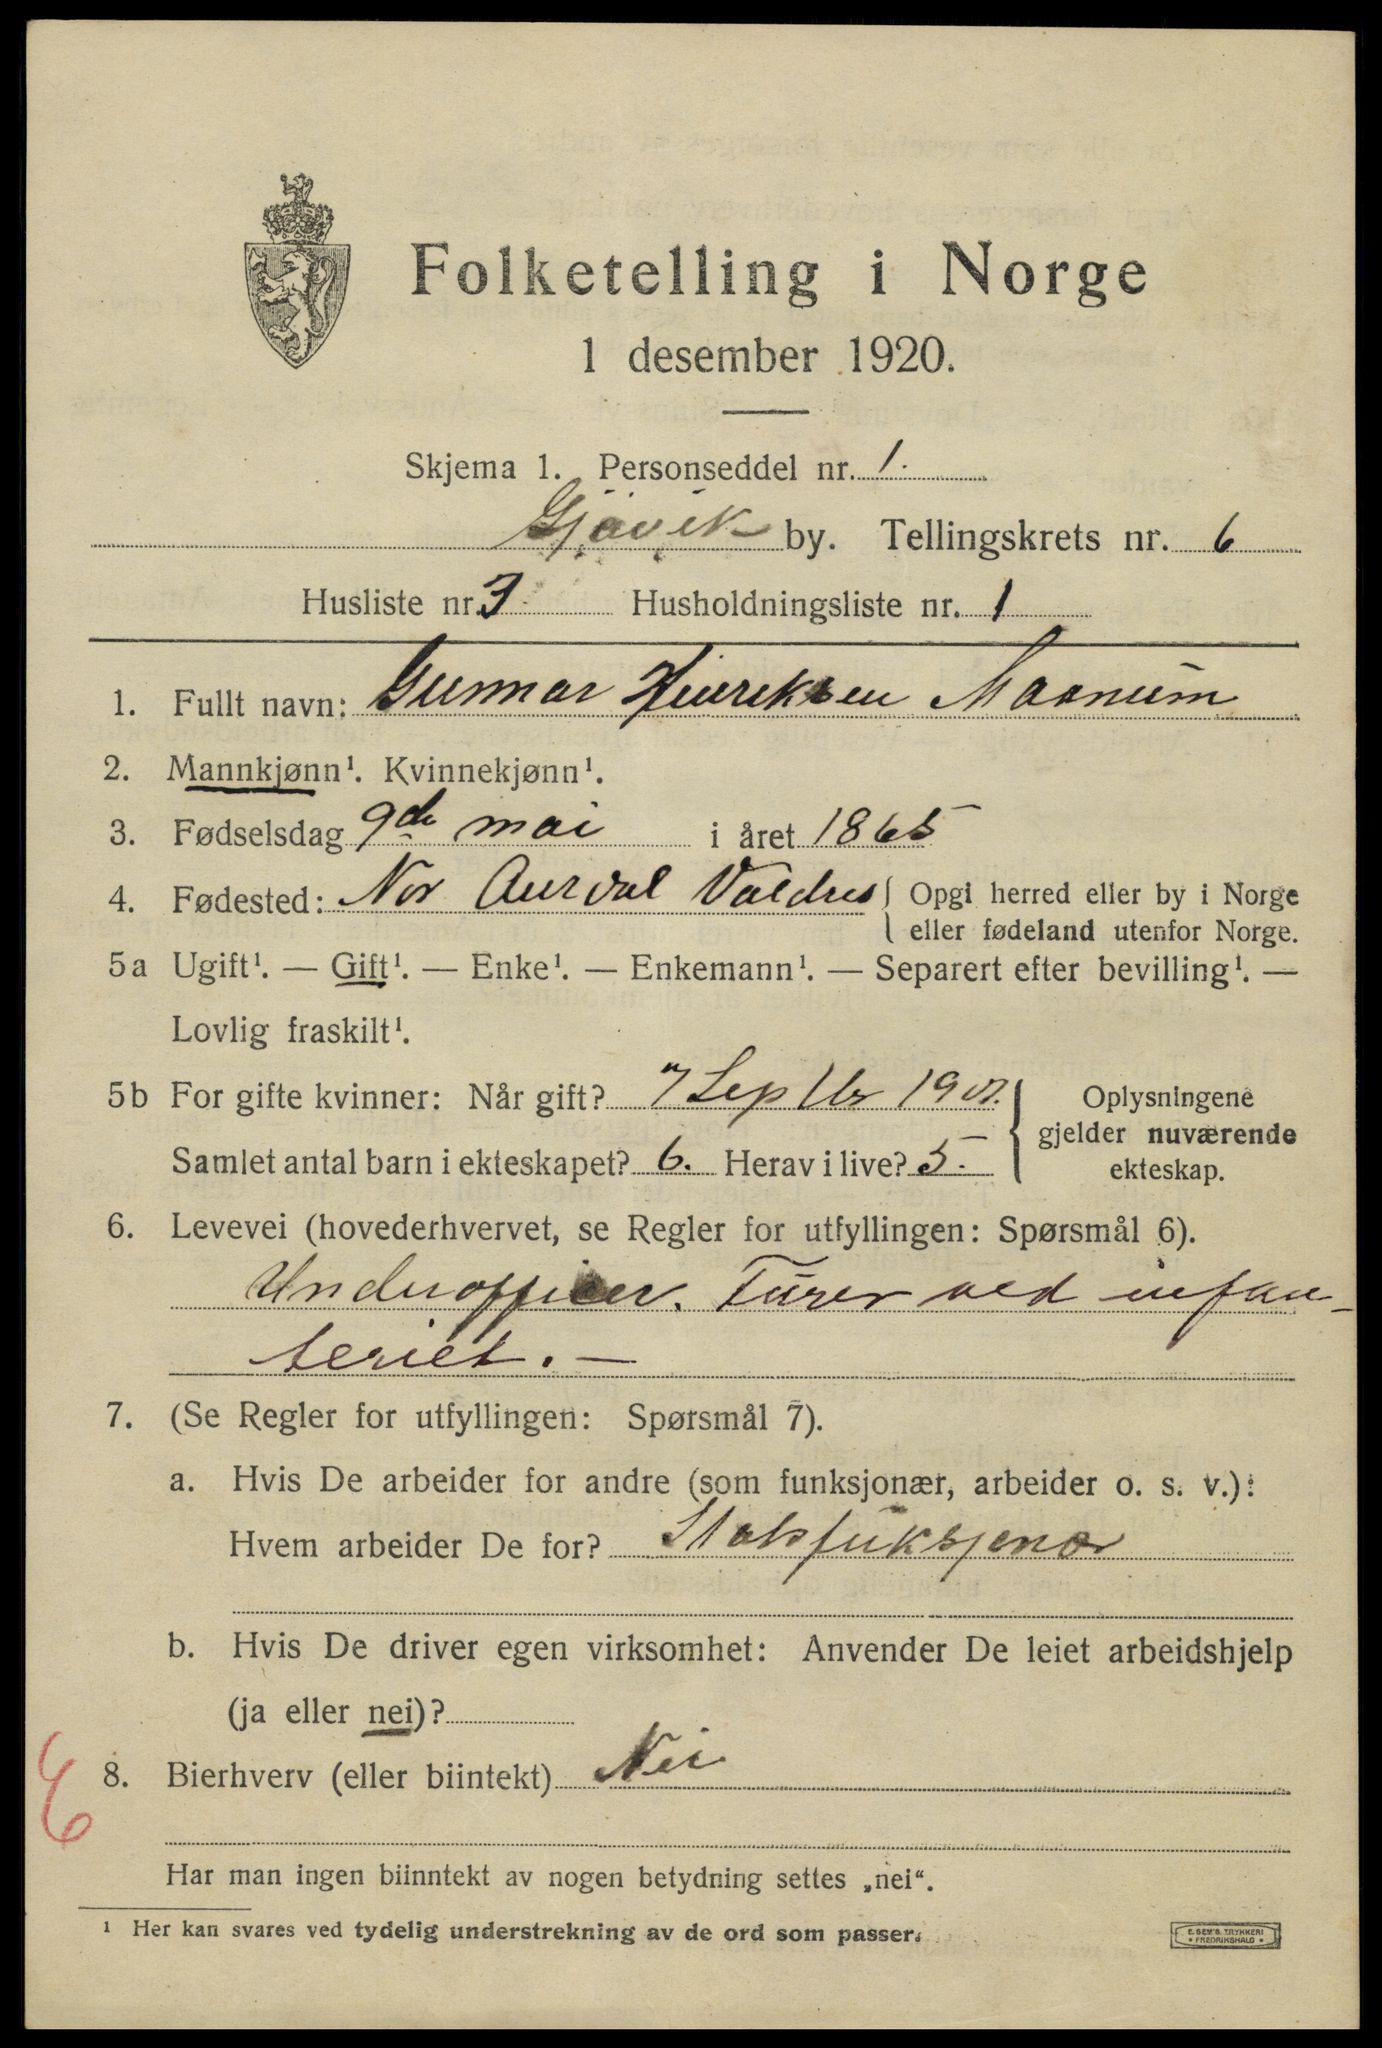 Folketelling i Norge
1 desember 1920.
Skjema 1. Personseddel nr. 1.
Gjøvik by. Tellingskrets nr. 6
Husliste nr. 3. Husholdningsliste nr. 1
1. Fullt navn: Gunnar Henriksen Maanum
2. Mannkjønn¹. Kvinnekjønn¹.
3. Fødselsdag 9de mai i året 1865
4. Fødested: Nor Aurdal Valdres { Opgi herred eller by i Norge
eller fødeland utenfor Norge.
5a Ugift¹. — Gift¹. — Enke¹. — Enkemann¹. — Separert efter bevilling¹. —
Lovlig fraskilt¹.
5b For gifte kvinner: Når gift? 7 Septbr
Samlet antal barn i ekteskapet? 6. Herav i live? 5.
Oplysningene
gjelder nuværende
ekteskap.
6. Levevei (hovederhvervet, se Regler for utfyllingen: Spørsmål 6).
Underofficer. Furer ved infan-
teriet. —
7. (Se Regler for utfyllingen: Spørsmål 7).
a. Hvis De arbeider for andre (som funksjonær, arbeider o. s. v.):
Hvem arbeider De for? Statsfuksjonær
b. Hvis De driver egen virksomhet: Anvender De leiet arbeidshjelp
(ja eller nei)?
8. Bierhverv (eller biintekt) Nei
Har man ingen biinntekt av nogen betydning settes „nei“.
¹ Her kan svares ved tydelig understrekning av de ord som passer.
E. SEM'S TRYKKERI
* FREDRIKSHALD *